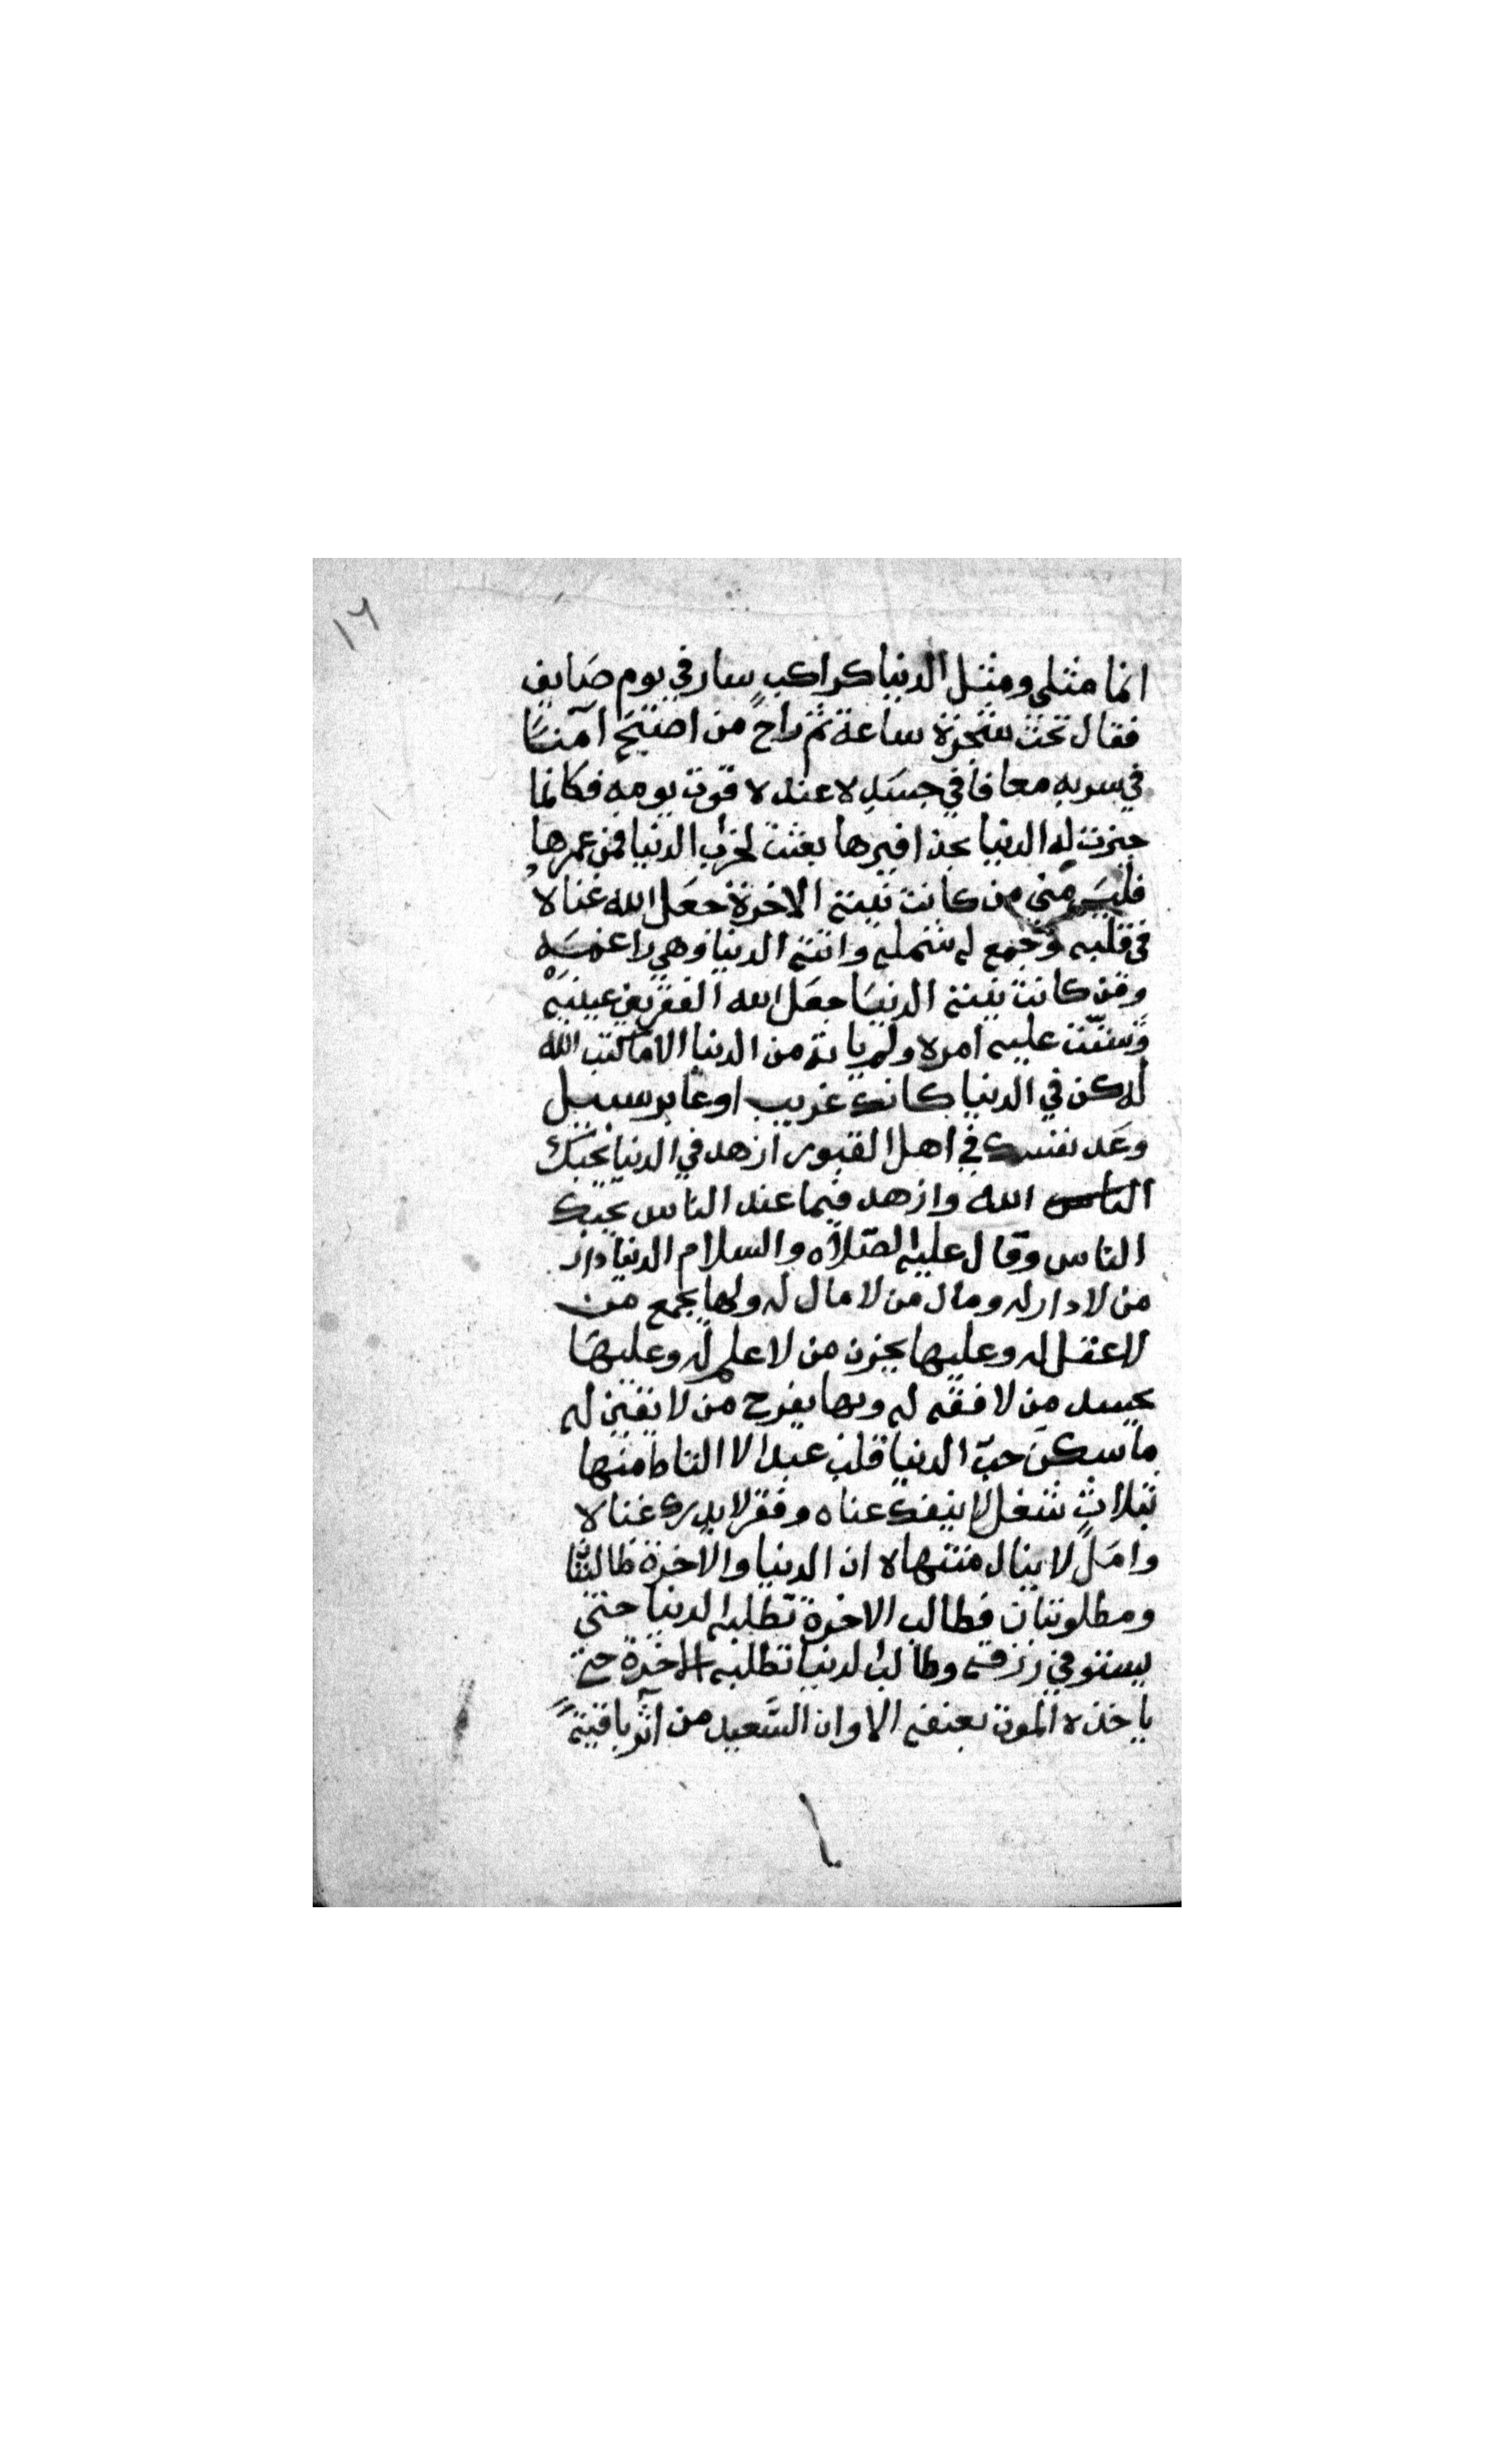 ١٦
انما مثلى ومثل الدنيا كراكبٍ سار في يوم صَايف
فقال تحت شجرة ساعة ثم راح من اصبح آمنًا
في سربه معافا في جسَدِه عنده قوت يومه فكانما
حيزت له الدنيا بحذافيرها بعثت لخراب الدنيا فمن عمرها
فليسَ منى من كانت نيته الاخرة جعَل الله غناه
فى قلبه وجمع له شمله واتته الدنيا وهي راغمَه
ومن كانت نيته الدنيَا جعَل الله الفقر بين عينيه
وَشتّت عليه امره ولم ياته من الدنيا الا ما كتب الله
له كن في الدنيا كانك غريب او عابر سبيل
وعَد نفسك في اهل القبور ازهد في الدنيا يحبّك
الناس الله وازهد فيما عند الناس يحبك
الناس وقال عليه الصّلاه والسلام الدنيا دار
من لا دار له ومال من لا مال له ولها يجمع من
لا عقل له وعليها يحزن من لا علم له وعليها
يحسد من لا فقه له وبها يفرح من لا يقين له
ما سكن حبّ الدنيا قلب عبد الا التاط منها
بثلاثٍ شغل لا ينفك عناه وفقر لا يدرك غناه
وامَلً لا ينال منتهاه ان الدنيا والاخرة طالبتان
ومطلوبتان فطالب الاخرة تطلبه الدنيا حتى
يستوفي رزقه وطالب الدنيا تطلبه الاخرة حتى
ياخذه الموت بعنقه الا وان السَّعيد من آثر باقيةً